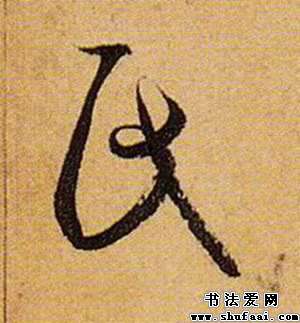 民
书法爱网
www.shufaai.com